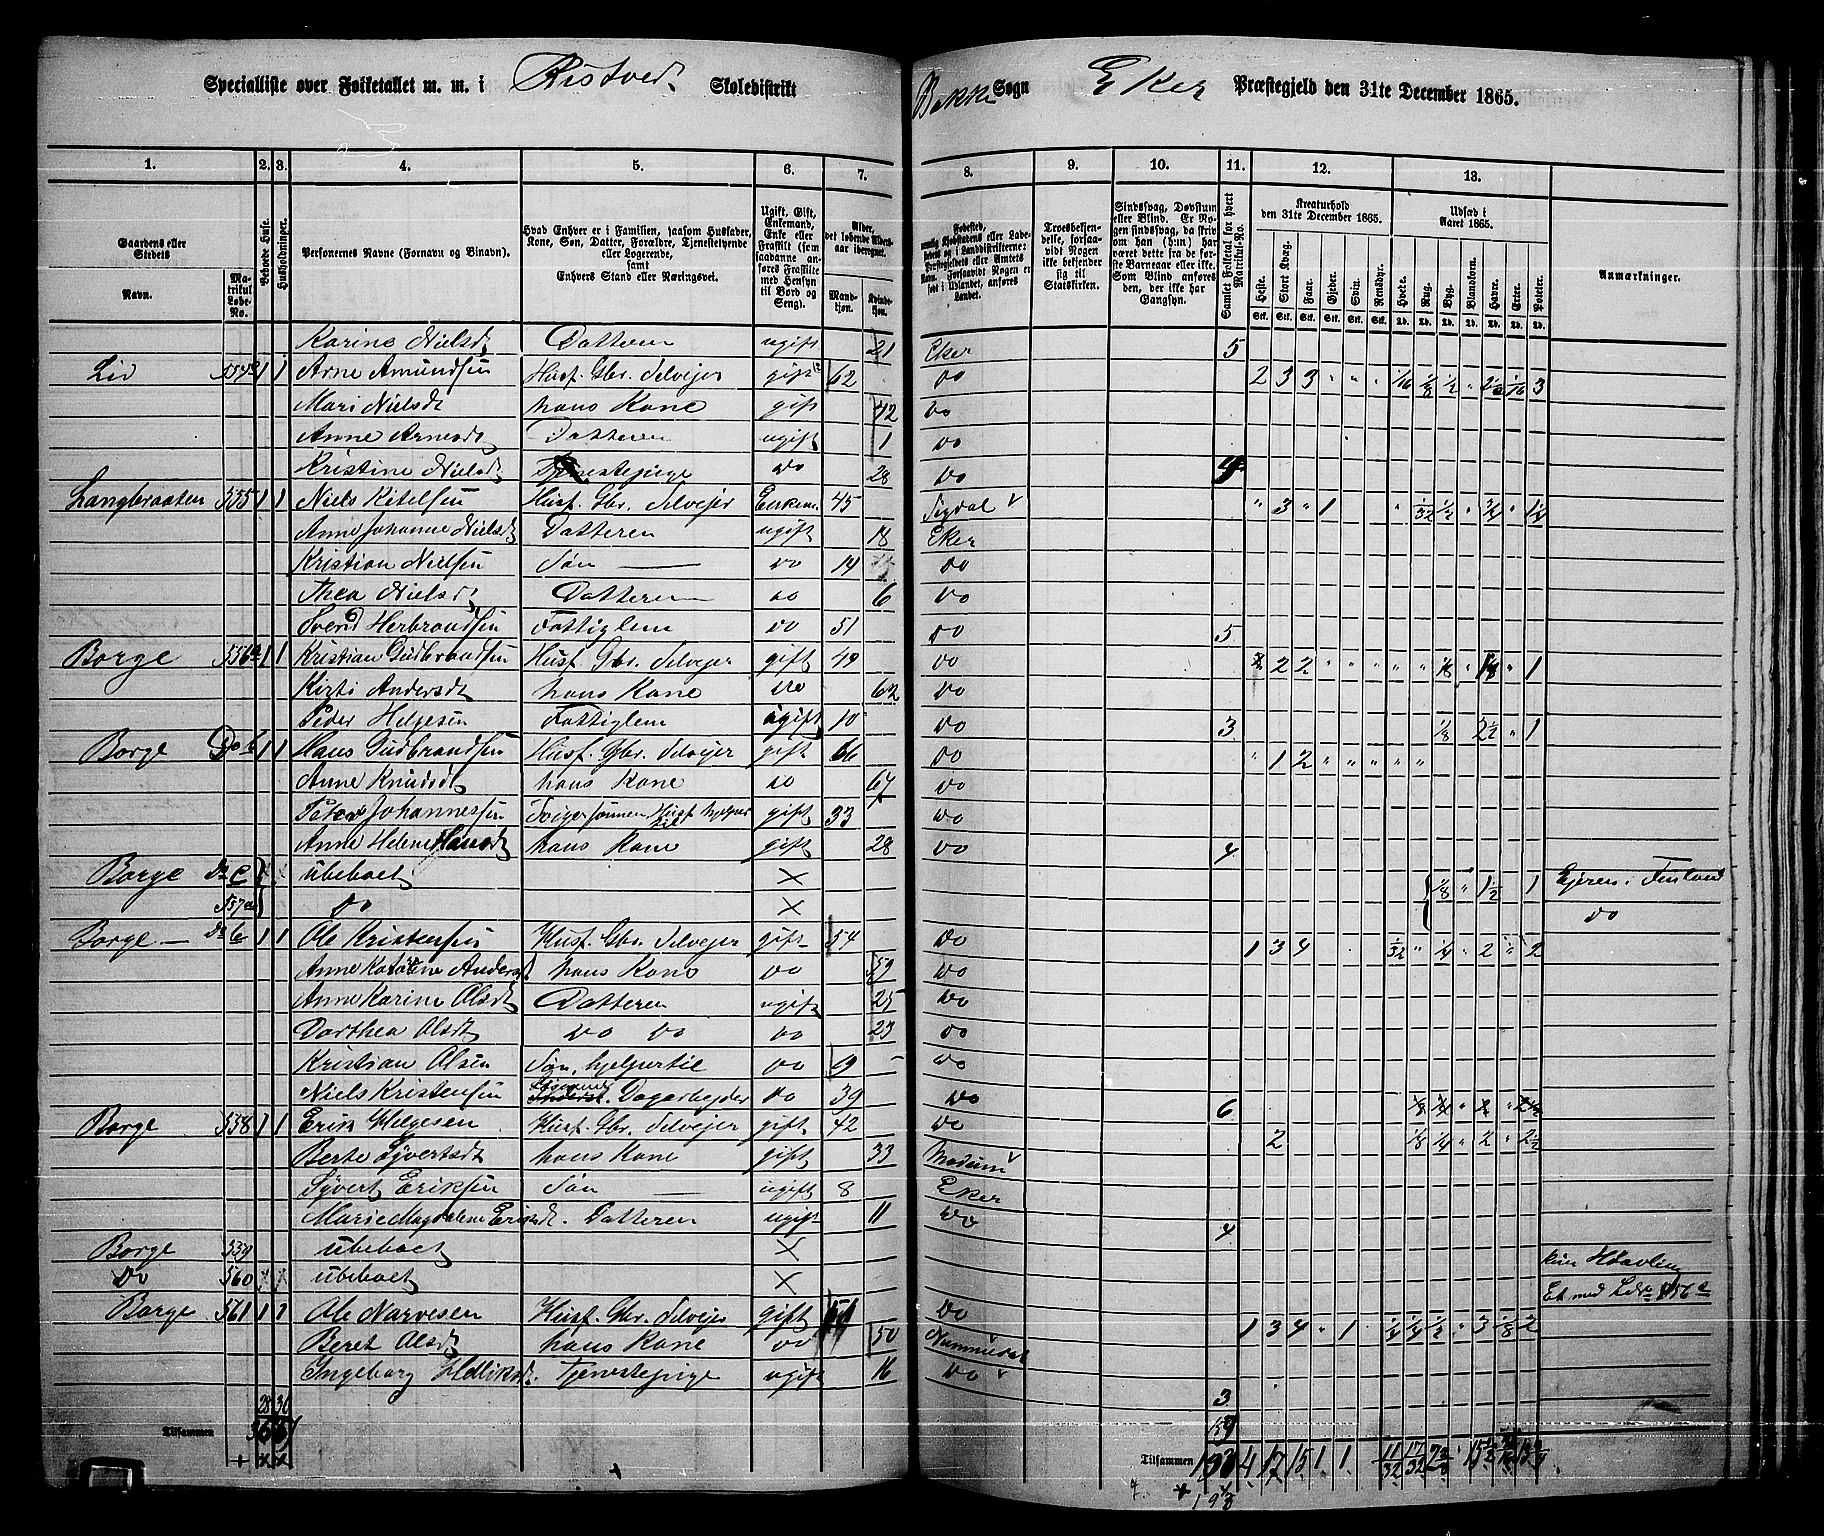 Specialliste over Folketallet m. m. i Ristvedt Skoledistrikt Bakke Sogn Eker Præstegjeld den 31te December 1865.
1. 2. 3. 4. 5. 6. 7. 8. 9. 10. 11. 12. 13.
Gaardens eller Stedets Navn.
Matrikul Løbe-No.
Beboede Huse.
Husholdninger.
Personernes Navne (Fornavn og Binavn).
Hvad Enhver er i Familien, saasom Husfader, Kone, Søn, Datter, Forældre, Tjenestetyende eller Logerende, samt Enhvers Stand eller Næringsvei.
Ugift, Gift, Enkemand, Enke eller Fraskilt (som saadanne anføres Fraskilte med Hensyn til Bord og Seng).
Alder, det løbende Aldersaar iberegnet.
Mandkjøn. Kvindekjøn.
Troesbekjendelse, forsaavidt Nogen ikke bekjender sig til Statskirken.
Sindssvag, Døvstum eller Blind. Er Nogen sindssvag, da skriv om han (hun) har været dette fra de første Barneaar eller ikke. Som Blind anføres den, der ikke har Gangsyn.
Samlet Folketal for hvert Matrikul-No.
Kreaturhold den 31te December 1865.
Heste. Stort Kvæg. Faar. Gjeder. Svin. Rensdyr.
Udsæd i Aaret 1865.
Hvede. Rug. Byg. Blandkorn. Havre. Erter. Poteter.
Anmærkninger.
Karine Nielsdt Datteren ugift 21 Eker 5
Lid 1 1 Arne Amundsen Husf. Gbr. Selvejer gift 62 do 2 3 3 " " " 1/16 1/8 1/2 " 1/16 3
Mari Nielsdt hans Kone gift 42 do
Anne Arnesdt Datteren ugift 1 do
Kristine Nielsdt Tjenestepige do 28 do 4
Langbraaten 535 1 1 Niels Kitelsen Husf. Gbr. Selvejer Enkem. 45 Sigdal " 3 " 1 " 1/32 1/2 " 3/4 " 1 1/4
Anne Johanne Nielsdt Datteren ugift 18 Eker
Kristian Nielsen Søn do 14 do
Thea Nielsdt Datteren do 6 do
Svend Herbrandsen Fattiglem do 51 do 5
Borge 1 1 Kristian Gudbrandsen Husf. Gbr. Selvejer gift 49 do 2 2 " " " " " 1/8 " " 1
Kirsti Andersdt hans Kone do 62 do
Peder Helgesen Fattiglem ugift 10 do 3 1/8 " 2 1/2 " 1
Borge Do b 1 1 Hans Gudbrandsen Husf. Gbr. Selvejer gift 66 do " 1 2 " " " " "
Anne Knudsdt hans Kone do 67 do
Peter Johannessen Svigersønnen Husf hjelper til gift 33 do
Anne Helene Hansdt hans Kone gift 28 do 4
Borge Do c ubeboet × 1/8 " 1 1/2 1 Ejeren i
537a do × do
Borge Do b 1 1 Ole Kristensen Husf. Gbr. Selvejer gift 54 do 1 3 4 1/32 " 1/4 " 2 " 2
Anne Katrine Andersdt hans Kone do 59 do
Anne Karine Olsdt Datteren ugift 25 do
Dorthea Olsdt do do do 23 do
Kristian Olsen Søn, hjelper til do 9 do
Niels Kristensen Dagarbejder do 39 do 6
Borge 538 1 1 Erik Helgesen Husf. Gbr. Selvejer gift 42 do 2 1/8 1/4 " 2 " 2 1/2
Berte Syvertsdt hans Kone gift 33 Modum
Syvert Eriksen Søn ugift 8 Eker
Marie Magdalene Eriksdt. Datteren ugift 11 do 4
Borge 539 ubeboet × kun
Do 560 ubeboet ×
Borge 561 1 1 Ole Narvesen Husf. Gbr. Selvejer gift do 1 3 4 " 1 1/4 1/4 1/2 " 3 1/8 2
Beret Olsdt hans Kone do 50 Nummedal
Ingeborg Tjenestepige ugift 16 do 3
28 30
Tilsammen
Tilsammen 4 17 15 1 1 11/32 17/32